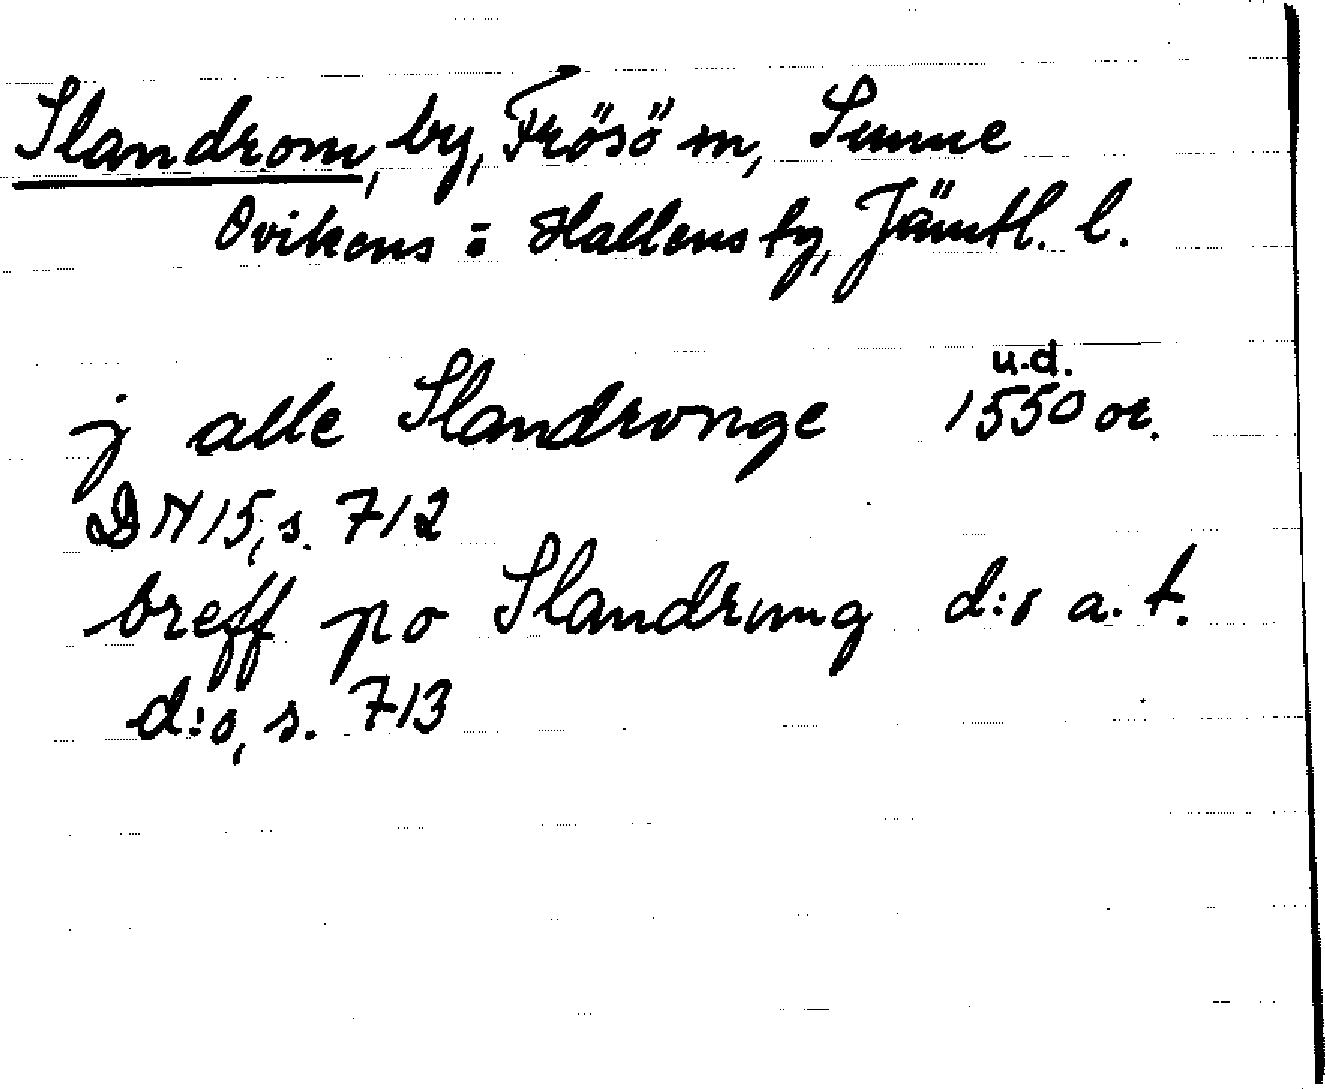 Slandrom, by, Frösö m, Sunne
Ovikens o Hallens tg, Jämtl. l.
j alle Slandronge u.d. 1550 or.
DN 15, s. 712
breff po Slandrung d:o a. t.
d:o, s. 713